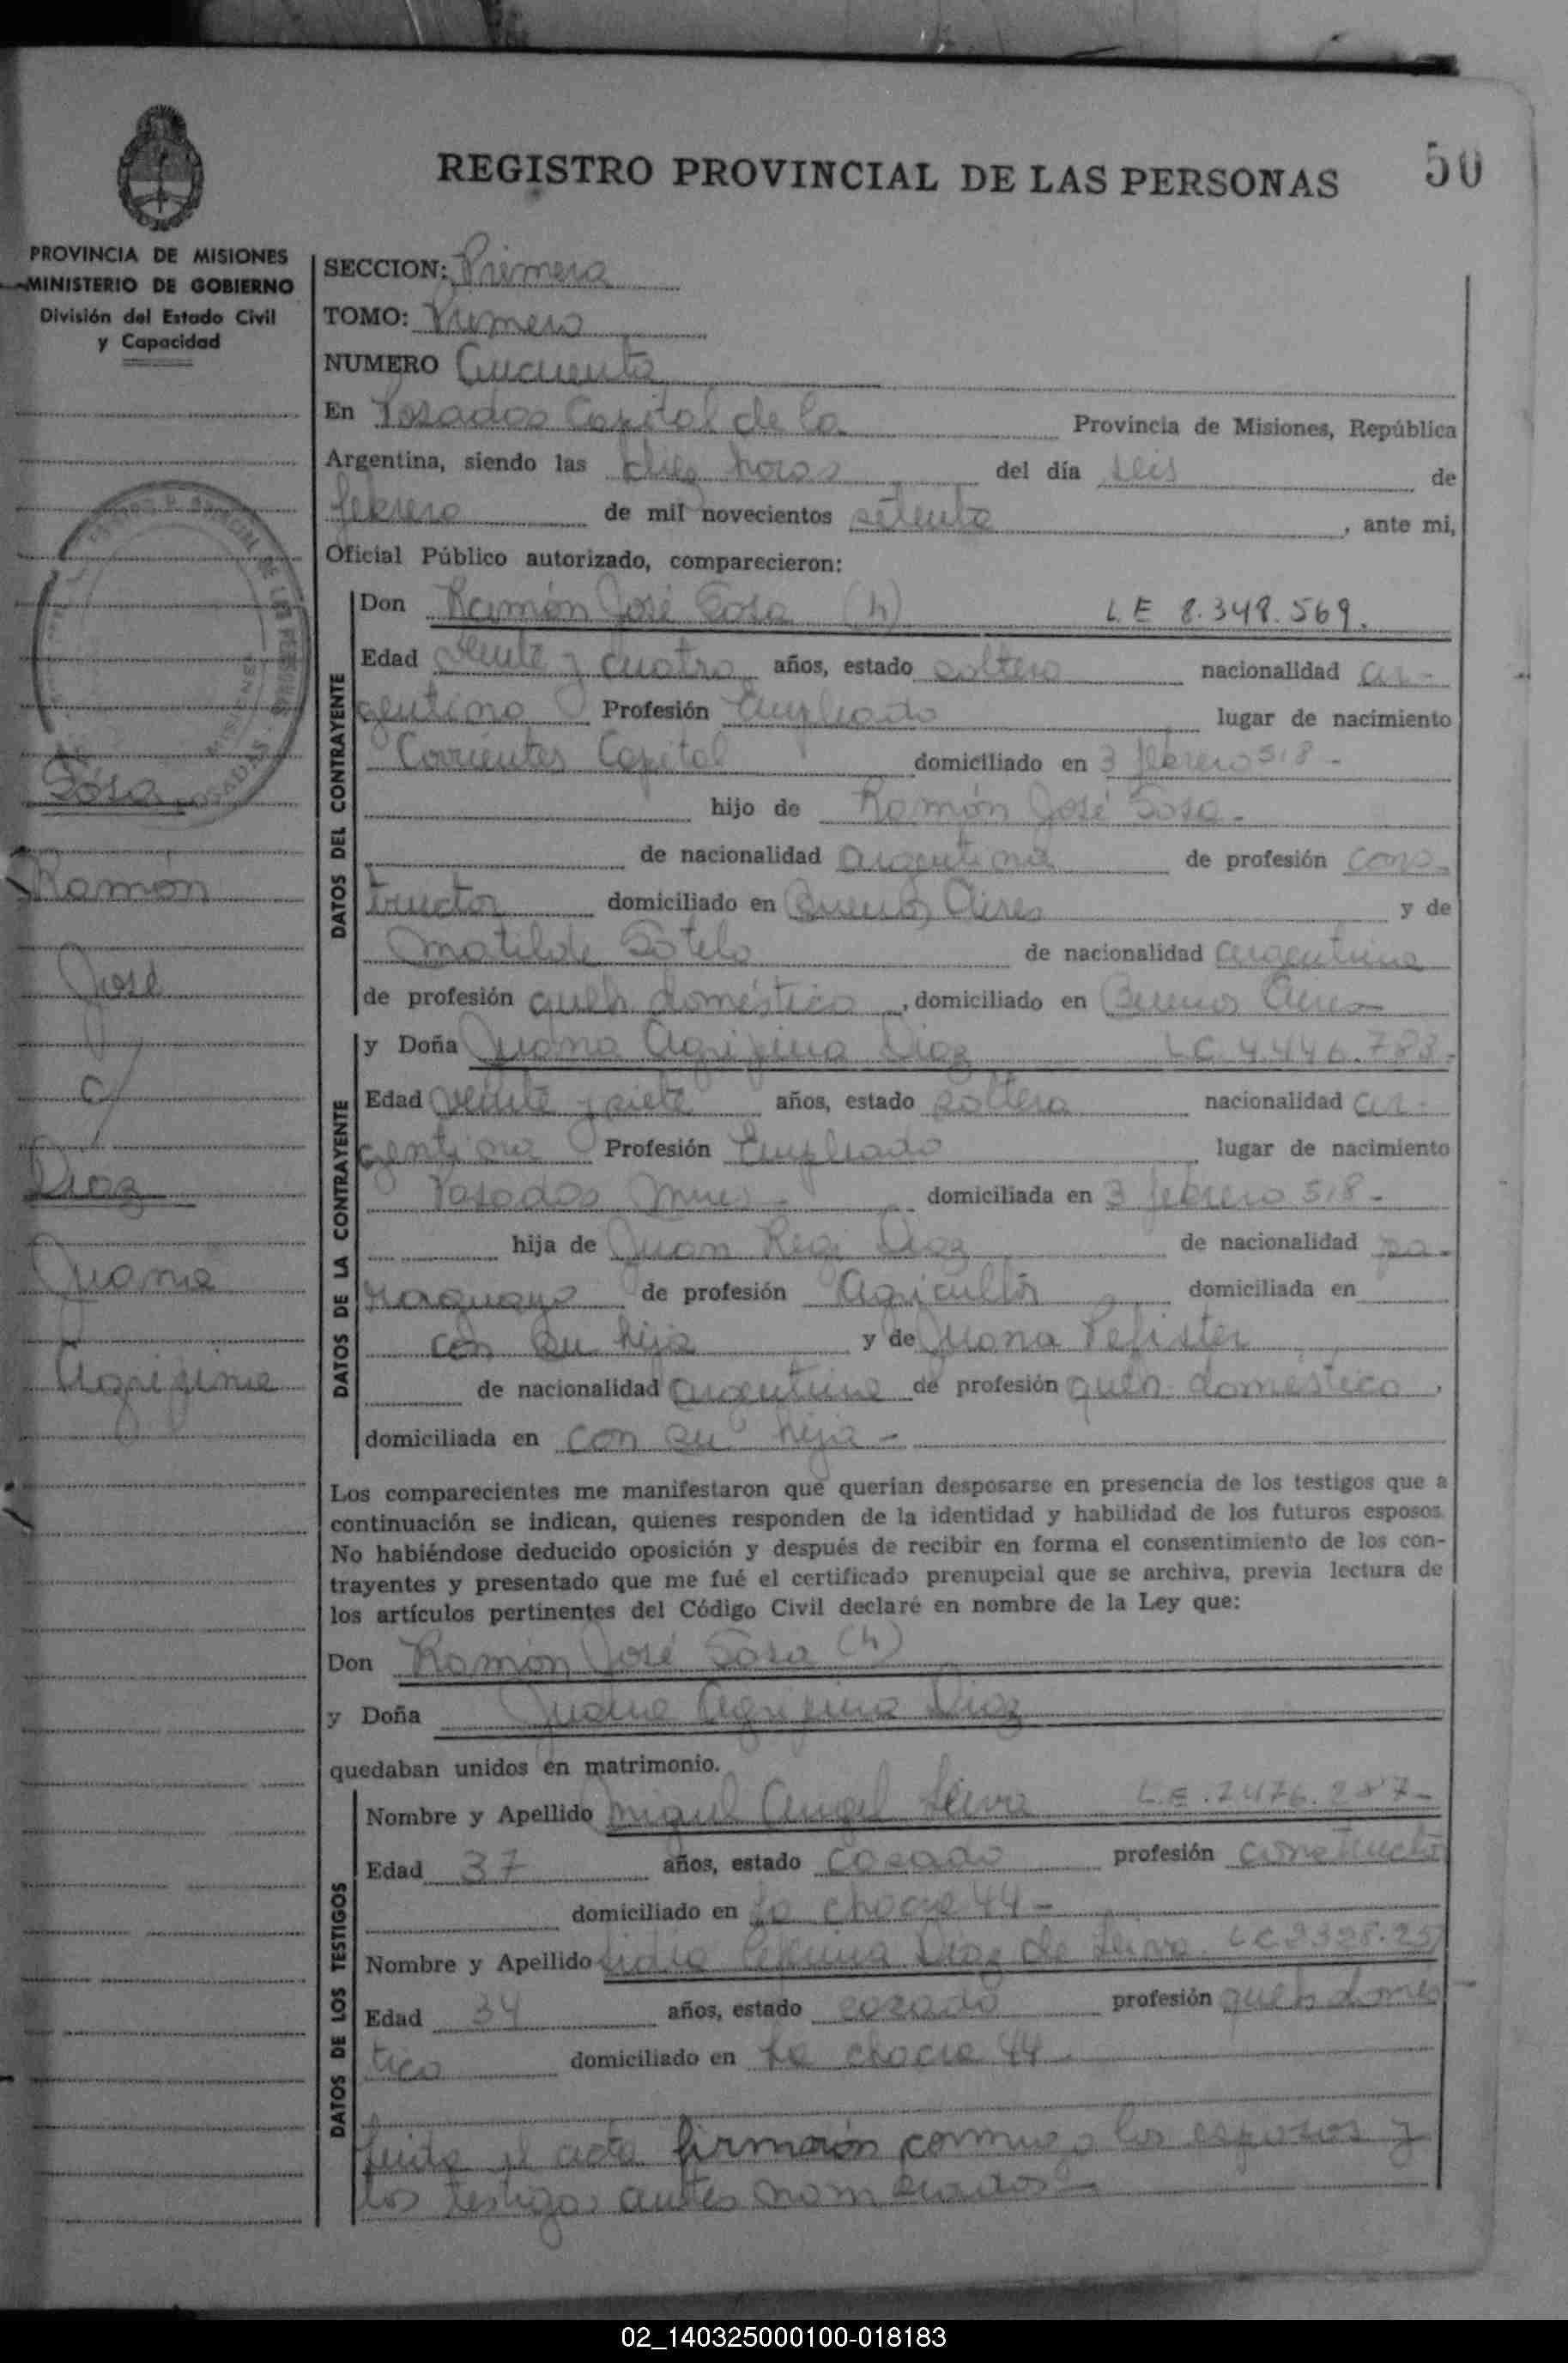 REGISTRO PROVINCIAL DE LAS PERSONAS
50
PROVINCIA DE MISIONES
MINISTERIO DE GOBIERNO
División del Estado Civil
y Capacidad
Sosa
Ramón
José
c/
Diaz
Juana
Agripina
SECCION: Primera
TOMO: Primero
NUMERO Cincuenta
En Posadas Capital de la Provincia de Misiones, República
Argentina, siendo las diez horas del día seis de
febrero de mil novecientos setenta, ante mi,
Oficial Público autorizado, comparecieron:
DATOS DEL CONTRAYENTE
Don Ramón José Sosa (h) L E 8.348.569.
Edad veinte y cuatro años, estado soltero nacionalidad ar-
gentina Profesión Empleado lugar de nacimiento
Corrientes Capital domiciliado en 3 febrero 518 -
hijo de Ramón José Sosa -
de nacionalidad argentina de profesión cons-
tructor domiciliado en Buenos Aires y de
Matilde Sotelo de nacionalidad argentina
de profesión queh doméstico, domiciliado en Buenos Aires
DATOS DE LA CONTRAYENTE
y Doña Juana Agripina Diaz LC 4.446.783-
Edad veinte y siete años, estado soltera nacionalidad ar-
gentina Profesión Empleada lugar de nacimiento
Posadas Mnes - domiciliada en 3 febrero 518 -
hija de Juan Diaz de nacionalidad pa-
raguaya de profesión Agricultor domiciliada en
con su hija y de Juana
de nacionalidad argentina de profesión queh doméstico,
domiciliada en con su hija -
Los comparecientes me manifestaron que querían desposarse en presencia de los testigos que a
continuación se indican, quienes responden de la identidad y habilidad de los futuros esposos.
No habiéndose deducido oposición y después de recibir en forma el consentimiento de los con-
trayentes y presentado que me fué el certificado prenupcial que se archiva, previa lectura de
los artículos pertinentes del Código Civil declaré en nombre de la Ley que:
Don Ramón José Sosa (h)
y Doña Juana Agripina Diaz
quedaban unidos en matrimonio.
DATOS DE LOS TESTIGOS
Nombre y Apellido Miguel Angel Leiva L.E. 7476.287-
Edad 37 años, estado casado profesión constructor
domiciliado en La chacra 44 -
Nombre y Apellido Lidia Diaz de Leiva
Edad 34 años, estado casado profesión queh domés-
tico domiciliado en La chacra 44 -
Leída el acta firmarón conmigo los esposos y
los testigos antes nombrados -
02_140325000100-018183